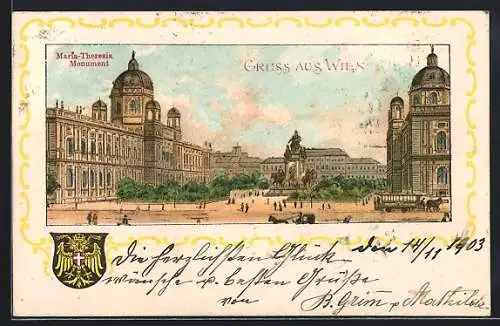 Maria-Theresia
Monument
GRUSS AUS WIEN
den 14/11 1903
Die herzlichsten Glück
wünsche u. besten Grüße
von B. Grim u. Mathilde